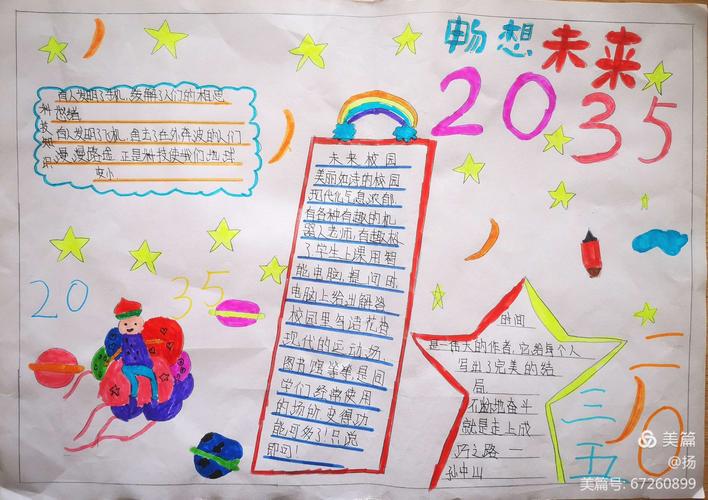 畅想未来
2035
有人发明了手机,缓解了人们的相思
愁绪
科技知识
有人发明了飞机,免去了在外奔波的人们
漫漫路途 正是科技使我们地球
变小
未来校园
美丽如诗的校园
现代化气息浓郁
有各种有趣的机
器人老师,有趣极
了学生上课用智
能电脑,提问时
电脑上给出解答
校园里鸟语花香
现代的运动场
图书馆等等是同
学们经常使用
的场所变得功
能可多了!只说
即可!
20 35
时间
是一伟大的作者,它给每个人
写出了完美的结
局
不断地奋斗
就是走上成
功之路 —
孙中山
二〇
三五
美篇
@扬
美篇号: 67260899